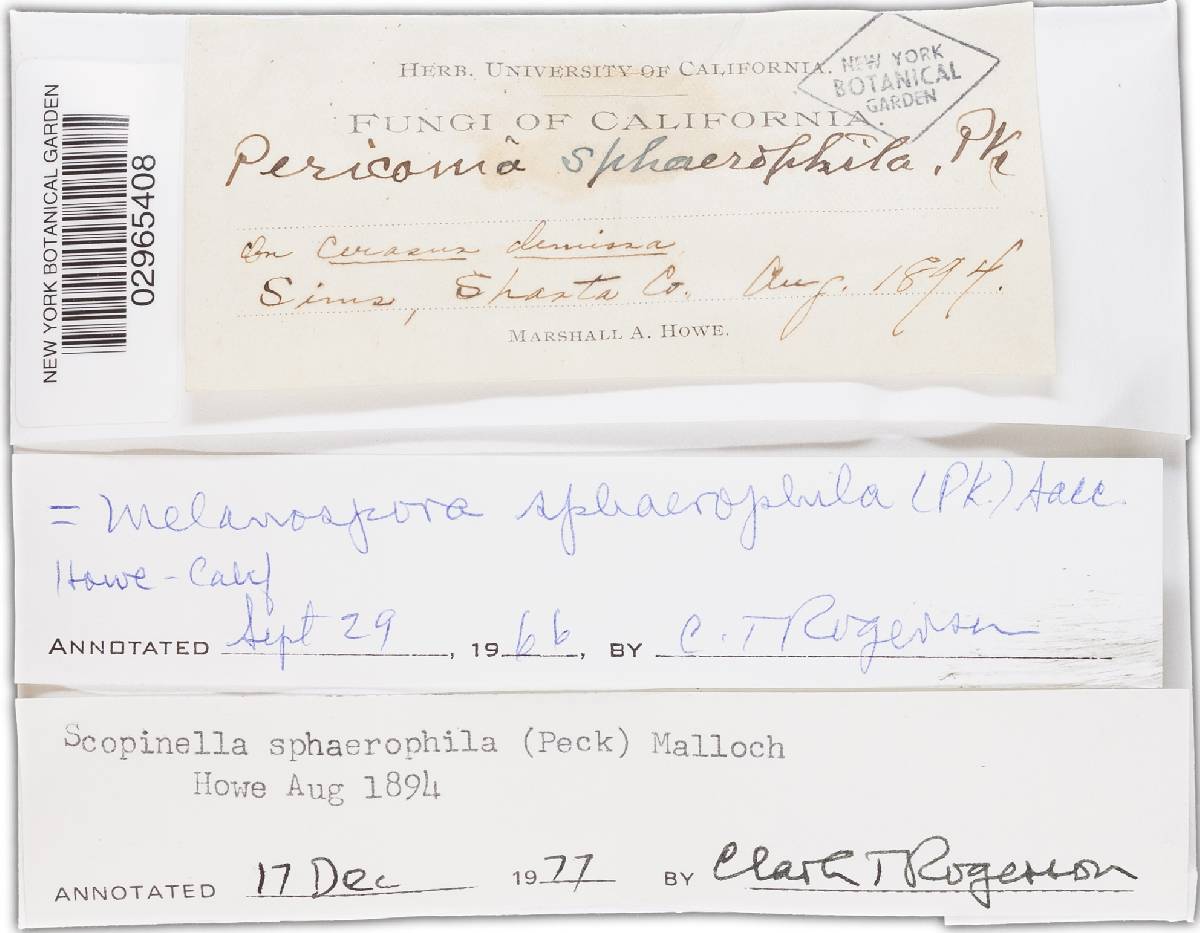 HERB. UNIVERSITY OF CALIFORNIA.
NEW YORK
BOTANICAL
GARDEN
FUNGI OF CALIFORNIA.
Periconia sphaerophila, Pk
On Cerasus demissa
Sims, Shasta Co. Aug. 1894.
MARSHALL A. HOWE.
NEW YORK BOTANICAL GARDEN
02965408
= Melanospora sphaerophila (Pk.) Sacc.
Howe - Calif
ANNOTATED Sept 29, 1966, BY C. T Rogerson
Scopinella sphaerophila (Peck) Malloch
Howe Aug 1894
ANNOTATED 17 Dec 1977 BY Clark T Rogerson